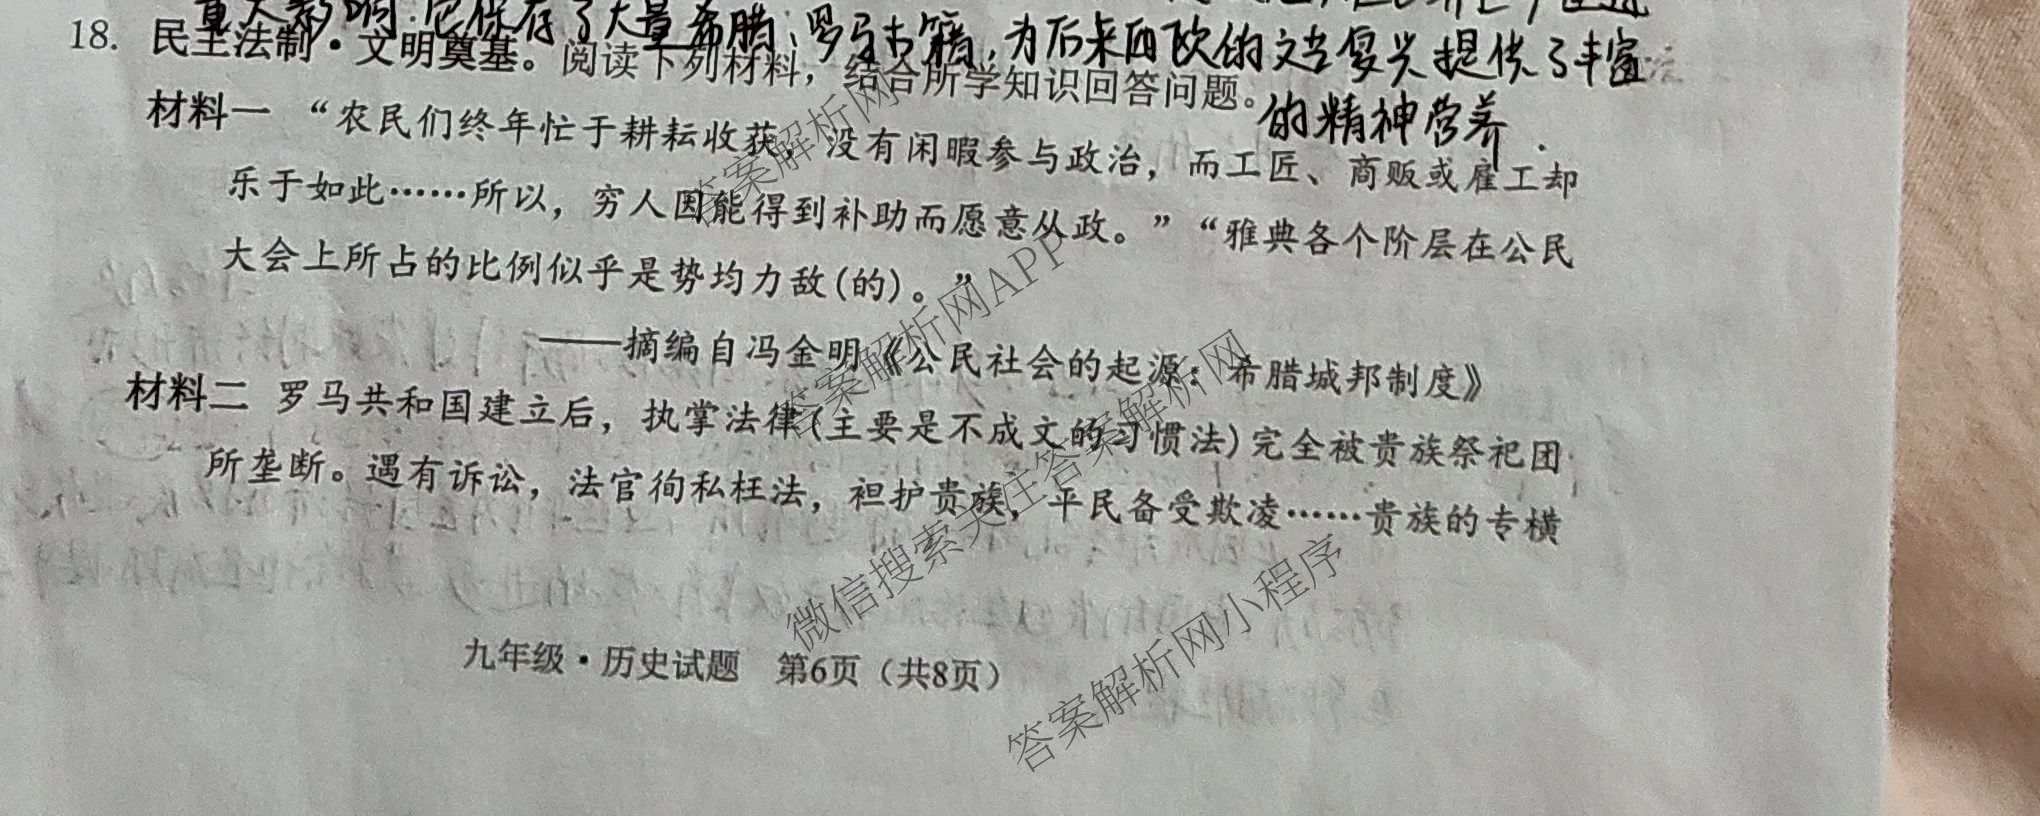 重大影响.它保存了大量希腊、罗马古籍,为后来西欧的文艺复兴提供了丰富
的精神营养.
18. 民主法制·文明奠基。阅读下列材料，结合所学知识回答问题。
材料一 “农民们终年忙于耕耘收获，没有闲暇参与政治，而工匠、商贩或雇工却
乐于如此……所以，穷人因能得到补助而愿意从政。”“雅典各个阶层在公民
大会上所占的比例似乎是势均力敌(的)。”
——摘编自冯金明《公民社会的起源：希腊城邦制度》
材料二 罗马共和国建立后，执掌法律(主要是不成文的习惯法)完全被贵族祭祀团
所垄断。遇有诉讼，法官徇私枉法，袒护贵族，平民备受欺凌……贵族的专横
九年级·历史试题 第6页（共8页）
答案解析网
答案解析网APP
微信搜索关注答案解析网
答案解析网小程序